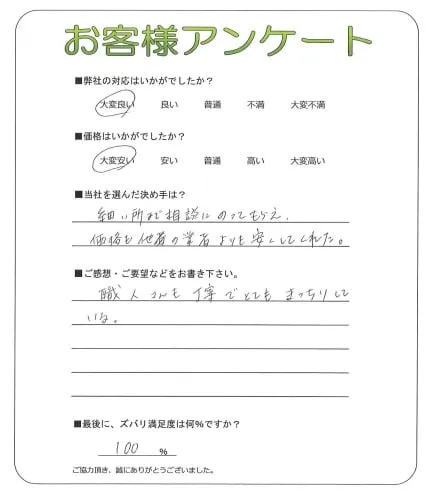 お客様アンケート
■弊社の対応はいかがでしたか？
大変良い 良い 普通 不満 大変不満
■価格はいかがでしたか？
大変安い 安い 普通 高い 大変高い
■当社を選んだ決め手は？
細い所まで相談にのってもらえ、
価格も他者の業者よりも安くしてくれた。
■ご感想・ご要望などをお書き下さい。
職人さんも丁寧でとてもきっちりして
いる。
■最後に、ズバリ満足度は何％ですか？
100 ％
ご協力頂き、誠にありがとうございました。